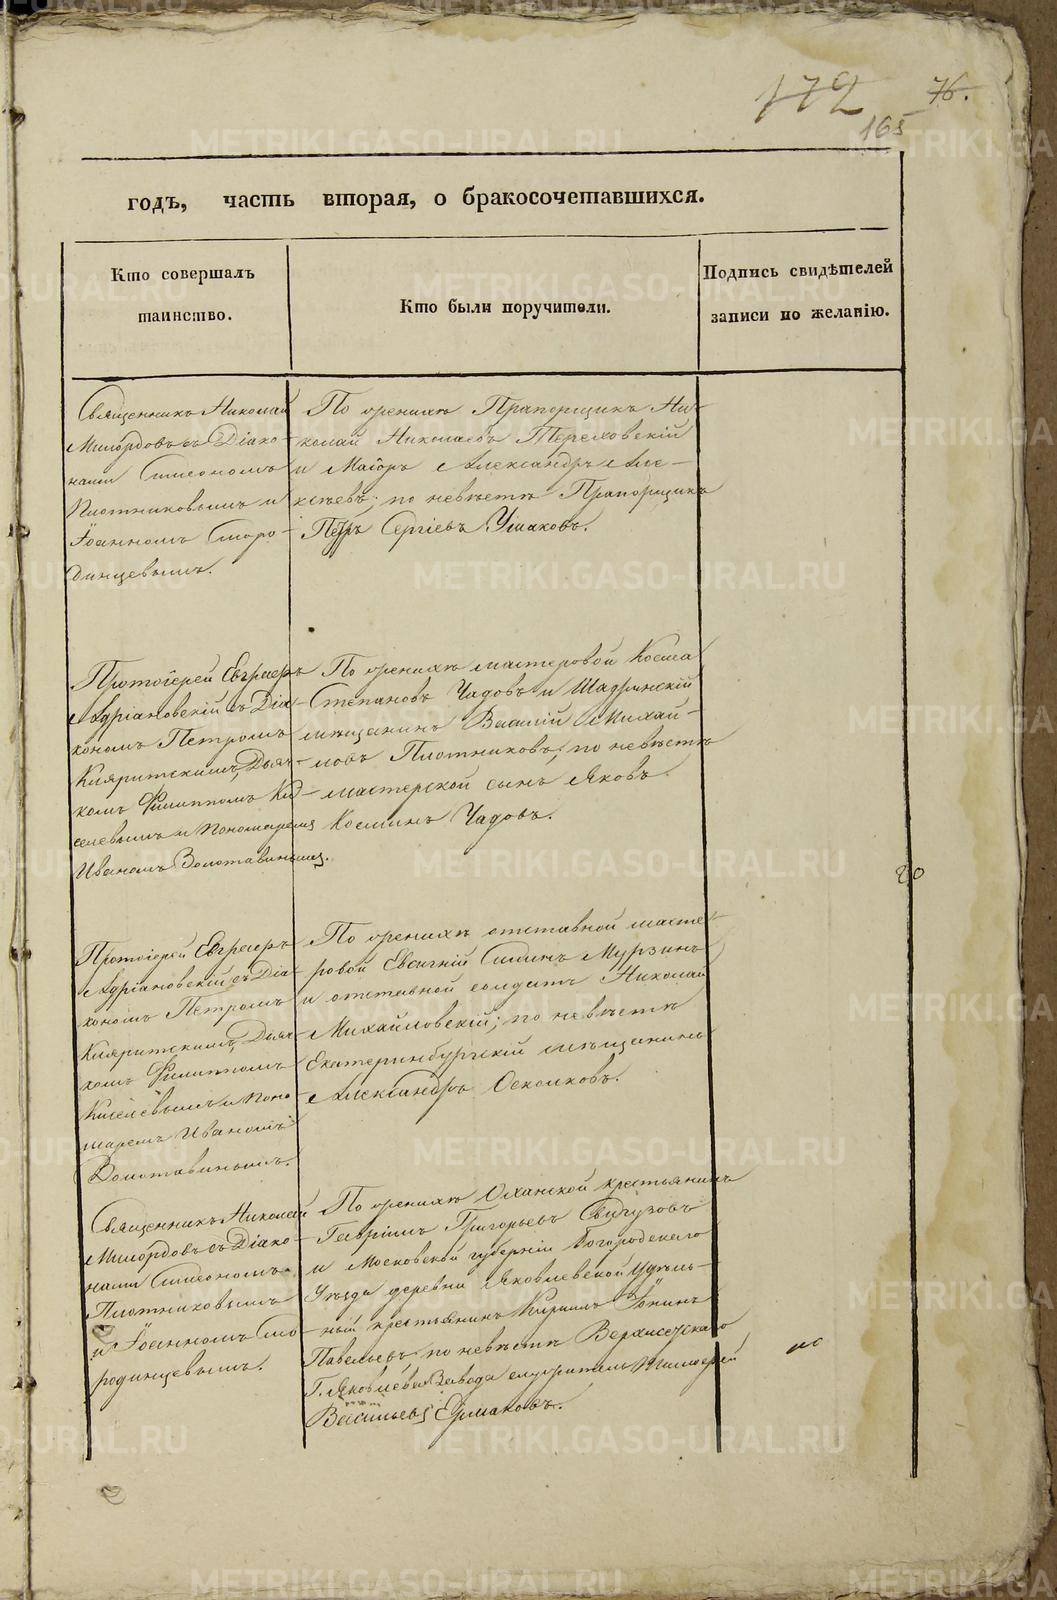 172
76.
165
годъ, часть вторая, о бракосочетавшихся.
Кто совершалъ
таинство.
Кто были поручители.
Подпись свидѣтелей
записи по желанію.
Священникъ Николай
Милордовъ съ Діако-
нами Симеономъ
Плотниковымъ и
Іоанномъ Сморо-
динцевымъ.
По женихѣ Прапорщикъ Ни-
колай Николаевъ Тереховскій
и Маіоръ Александръ Але-
ксѣевъ; по невѣстѣ Прапорщикъ
Петръ Сергіевъ Ушаковъ.
Протоіерей Евграфъ
Адріановскій съ Діа-
кономъ Петромъ
Киляритскимъ, Дьяч-
комъ Филиппомъ Ки-
селевымъ и Пономаремъ
Иваномъ Золотавинымъ.
По женихѣ мастеровой Косма
Степановъ Чадовъ и Шадринскій
мѣщанинъ Василій Михай-
ловъ Плотниковъ; по невѣстѣ
мастерской сынъ Яковъ
Косминъ Чадовъ.
Протоіерей Евграфъ
Адріановскій съ Діа-
кономъ Петромъ
Киляритскимъ, Дьяч-
комъ Филиппомъ
Киселевымъ и Поно-
маремъ Иваномъ
Золотавинымъ.
По женихѣ отставной масте-
ровой Евсигній Силинъ Мурзинъ
и отставной солдатъ Николай
Михайловскій; по невѣстѣ
Екатеринбургскій мѣщанинъ
Александръ Осколковъ.
Священникъ Николай
Милордовъ съ Діако-
нами Симеономъ
Плотниковымъ
и Іоанномъ Смо-
родинцевымъ.
По женихѣ Оханской крестьянинъ
Гавріилъ Григорьевъ
и Московской губерніи Богородскаго
Уѣзда деревни Яковлевской Удѣль-
ный крестьянинъ Кирилъ
Павельевъ, по невѣстѣ Верхисетскаго
Г. Яковлева Завода служитель
Васильевъ Ермаковъ.
METRIKI.GASO-URAL.RU